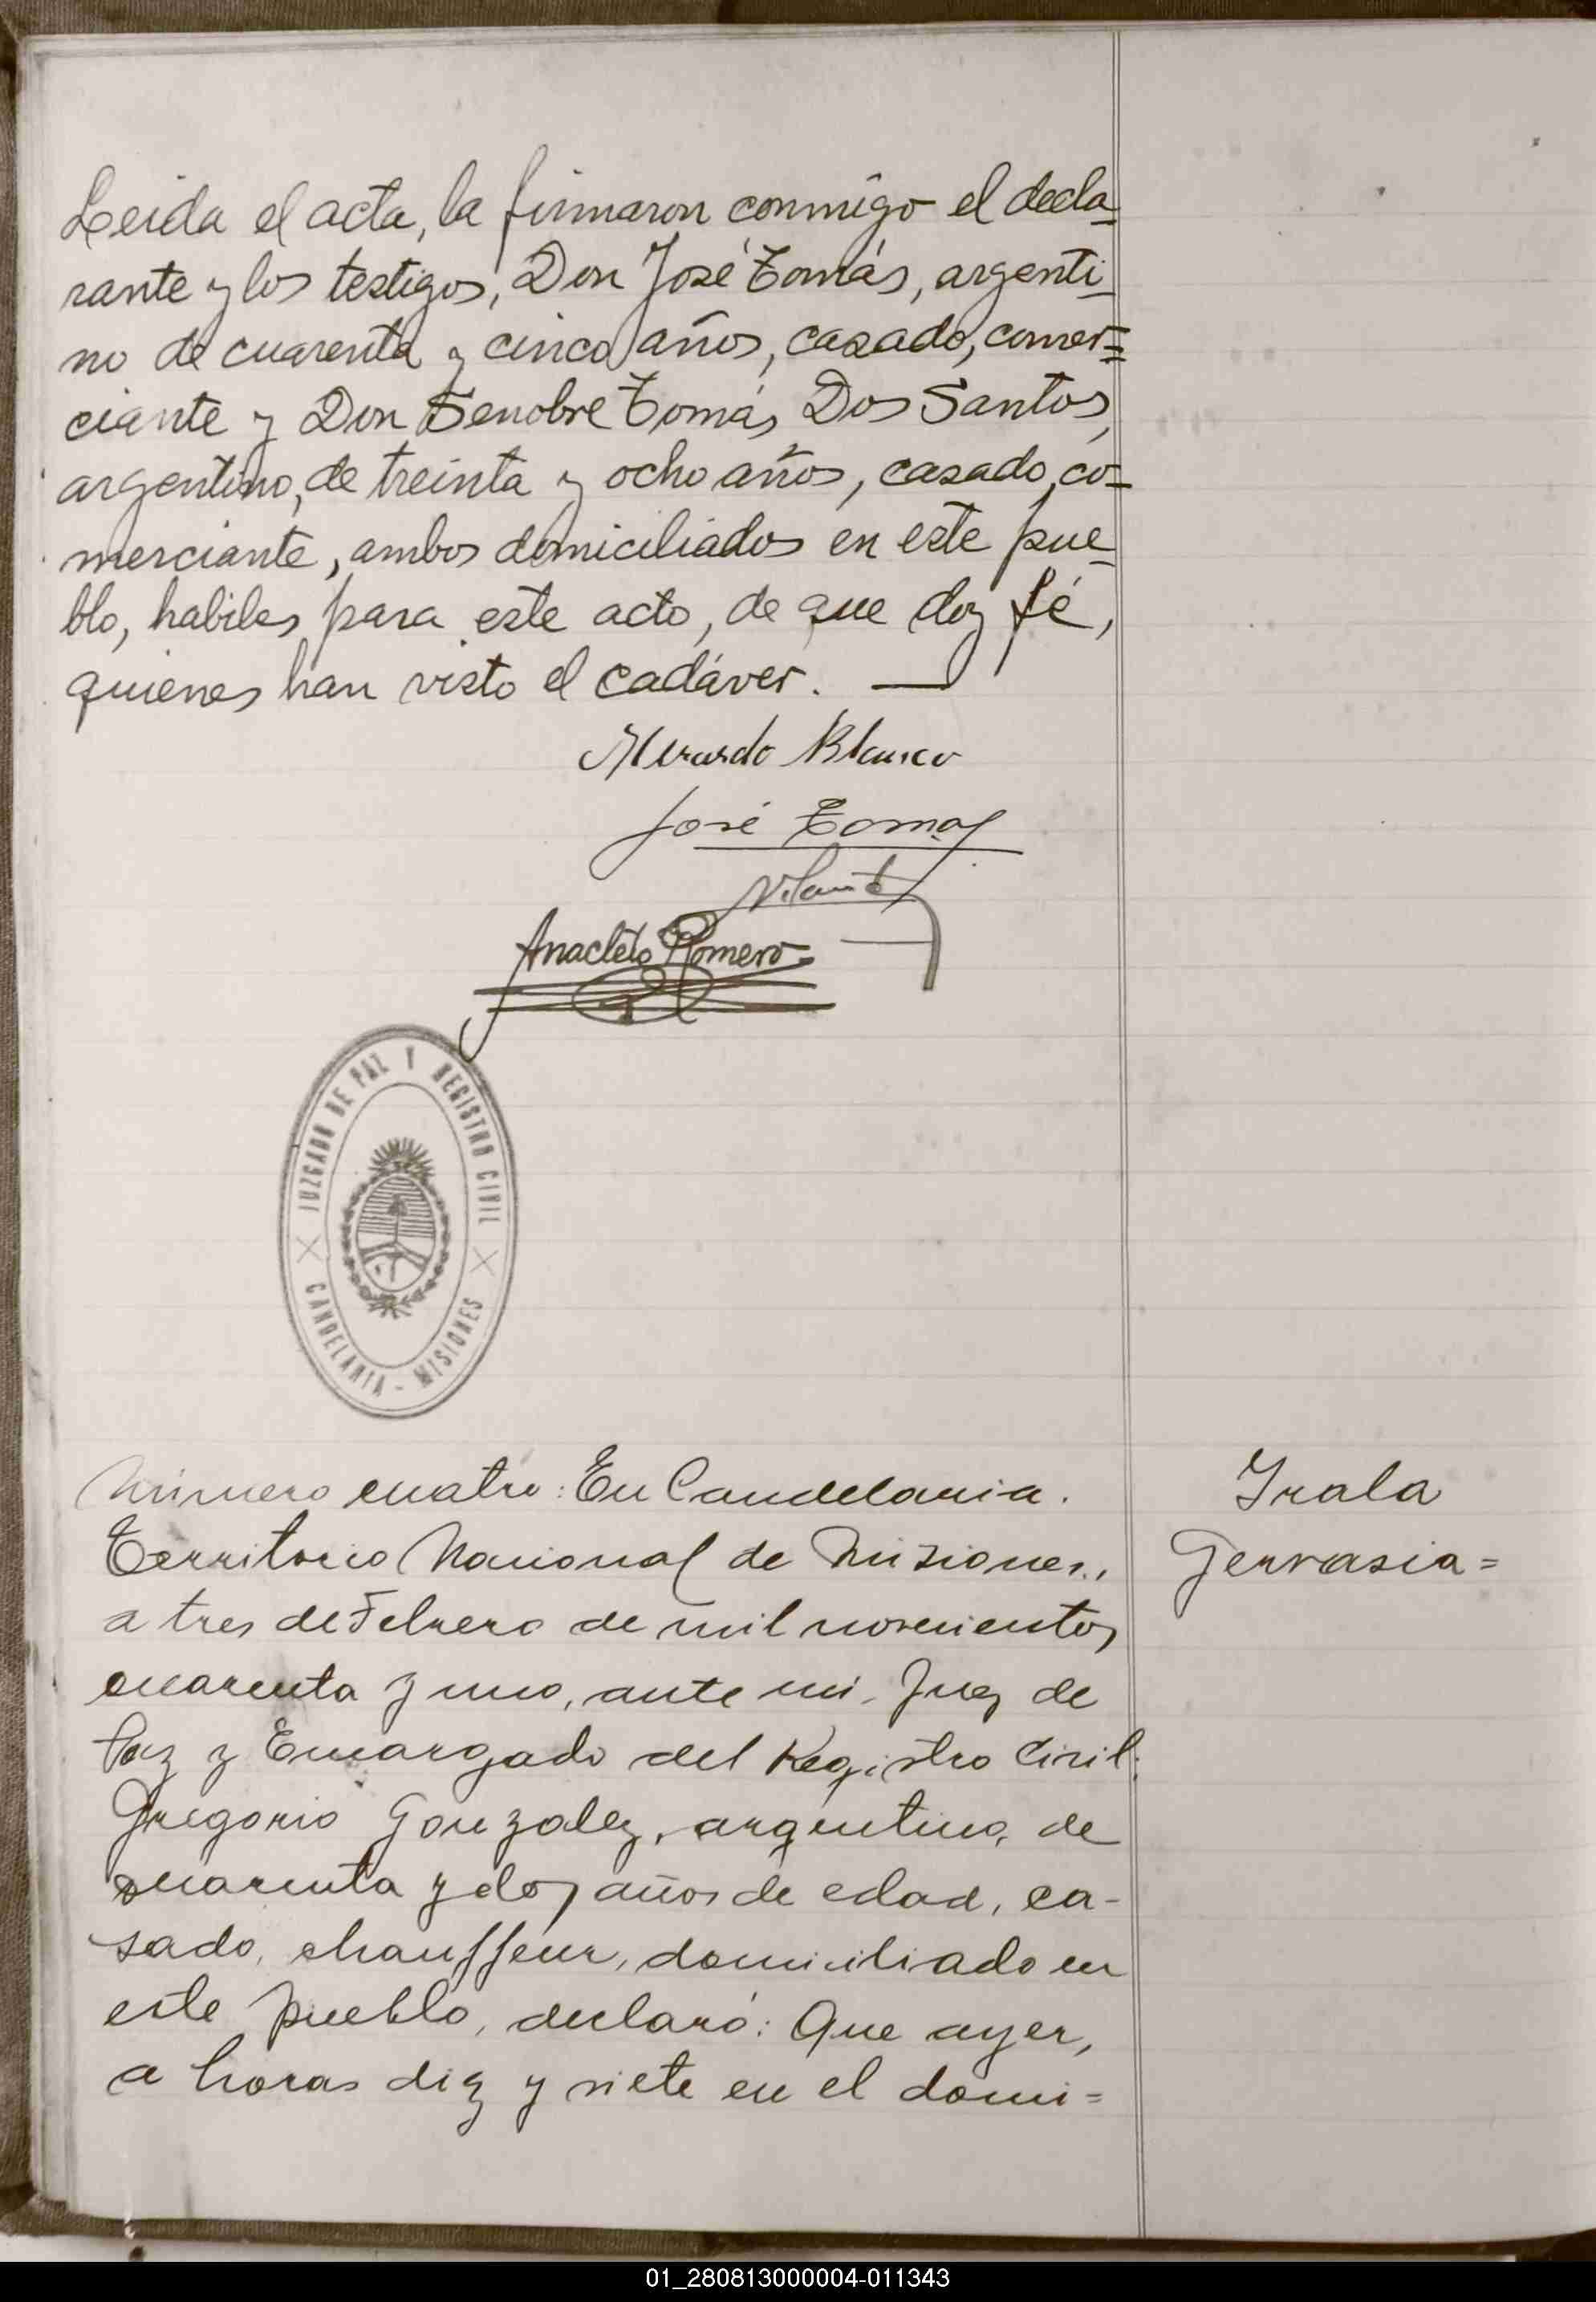 Leida el acta, la firmaron conmigo el decla_
rante y los testigos, Don José Tomás, argenti_
no de cuarenta y cinco años, casado, comer=
ciante y Don Senobre Tomás Dos Santos,
argentino, de treinta y ocho años, casado, co_
merciante, ambos domiciliados en este pue_
blo, habiles para este acto, de que doy fé,
quienes han visto el cadáver. —
Merardo Blanco
José Tomas
Anacleto Romero
JUZGADO DE PAZ Y REGISTRO CIVIL
CANDELARIA - MISIONES
Número cuatro: En Candelaria.
Territorio Nacional de Misiones,
a tres de Febrero de mil novecientos
cuarenta y uno, ante mi, Juez de
Paz y Encargado del Registro Civil;
Gregorio Gonzalez, argentino, de
cuarenta y dos años de edad, ca-
sado, chauffeur, domiciliado en
este pueblo, declaró: Que ayer,
a horas diez y siete en el domi=
Irala
Gervasia=
01_280813000004-011343